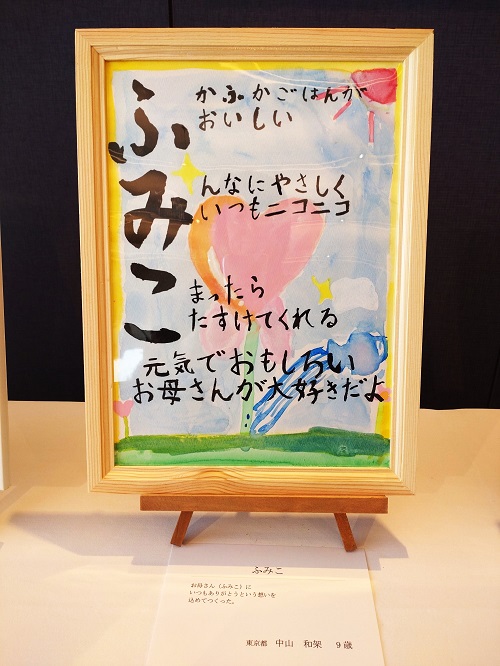 ふみこ
かふかごはんが
おいしい
んなにやさしく
いつもニコニコ
まったら
たすけてくれる
元気でおもしろい
お母さんが大好きだよ
ふみこ
お母さん(ふみこ)に
いつもありがとうという想いを
込めてつくった。
東京都 中山 和架 9歳